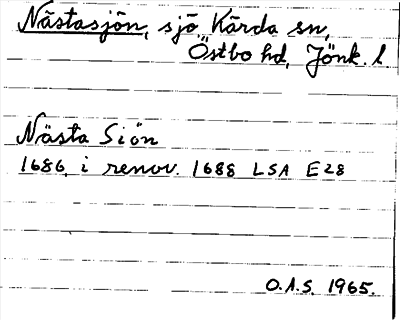 Nästasjön, sjö Kärda sn,
Östbo hd, Jönk. l.
Nästa Siön
1686, i renov. 1688 LSA E28
O.A.S. 1965.